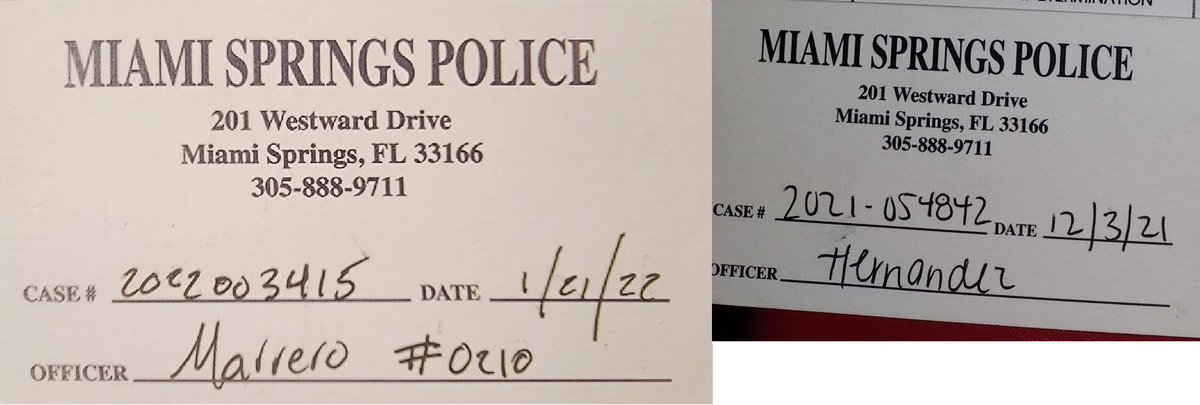 MIAMI SPRINGS POLICE
201 Westward Drive
Miami Springs, FL 33166
305-888-9711
CASE # 2022003415 DATE 1/21/22
OFFICER Marrero #0210
MIAMI SPRINGS POLICE
201 Westward Drive
Miami Springs, FL 33166
305-888-9711
CASE # 2021-054842 DATE 12/3/21
OFFICER Hernandez